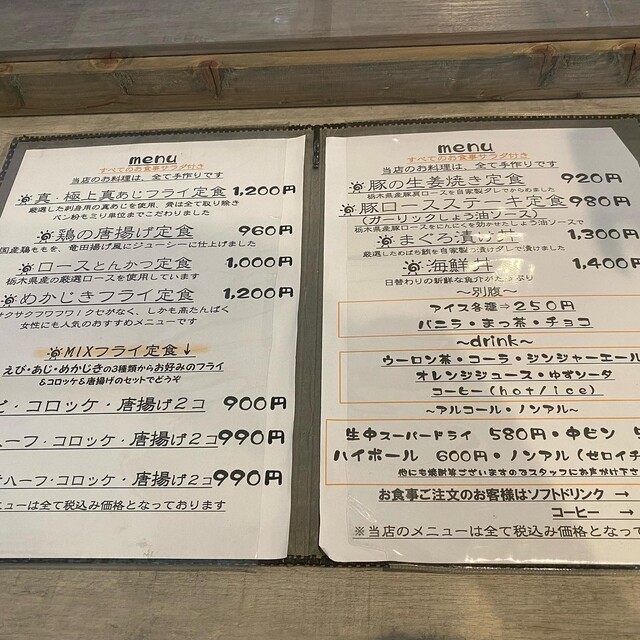 menu
すべてのお食事サラダ付き
当店のお料理は、全て手作りです
真・極上真あじフライ定食 1,200円
厳選した刺身用の真あじを使用、骨は全て取り除き
パン粉もミリ単位までこだわりました
鶏の唐揚げ定食 960円
国産鶏ももを、竜田揚げ風にジューシーに仕上げました
ロースとんかつ定食 1,000円
栃木県産の厳選ロースを使用しています
めかじきフライ定食 1,200円
サクサクフワフワ!クセがなく、しかも高たんぱく
女性にも人気のおすすめメニューです
MIXフライ定食↓
えび・あじ・めかじきの3種類からお好みのフライ
&コロッケ&唐揚げのセットでどうぞ
・コロッケ・唐揚げ2コ 900円
ハーフ・コロッケ・唐揚げ2コ 990円
ハーフ・コロッケ・唐揚げ2コ 990円
ニューは全て税込み価格となっております
menu
すべてのお食事サラダ付き
当店のお料理は、全て手作りです
豚の生姜焼き定食 920円
栃木県産豚肩ロースを自家製ダレでからめました
豚ロースステーキ定食 980円
(ガーリックしょう油ソース)
栃木県産豚ロースをにんにくを効かせたしょう油ソースで
まぐろ漬け丼 1,300円
厳選しためばち鮪を自家製づけダレで漬けました
海鮮丼 1,400円
日替わりの新鮮な魚介がたっぷり
〜別腹〜
アイス各種⇒250円
バニラ・まっ茶・チョコ
〜drink〜
ウーロン茶・コーラ・ジンジャーエール
オレンジジュース・ゆずソーダ
コーヒー(hot/ice)
〜アルコール・ノンアル〜
生中スーパードライ 580円・中ビン
ハイボール 600円・ノンアル(ゼロイチ
他にも焼酎等ございますのでスタッフにお声がけ下さ
お食事ご注文のお客様はソフトドリンク →
コーヒー →
※当店のメニューは全て税込み価格となって